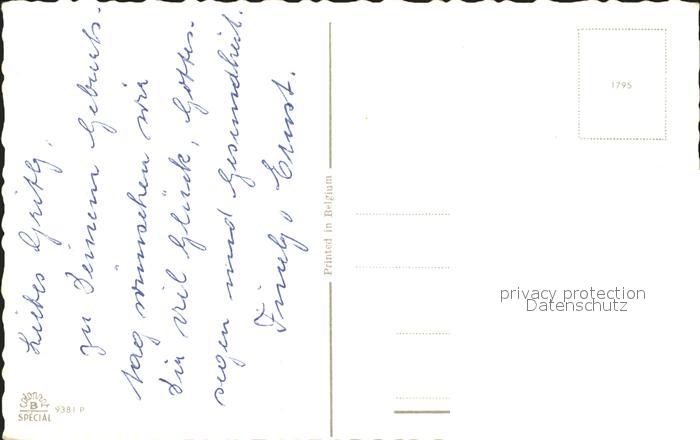 Liebes Gritly,
zu Deinem Geburts-
tag wünschen wir
Dir viel Glück, Gottes-
segen und Gesundheit.
Ernst.
Printed in Belgium
1795
privacy protection
Datenschutz
B
SPÉCIAL
9381 P